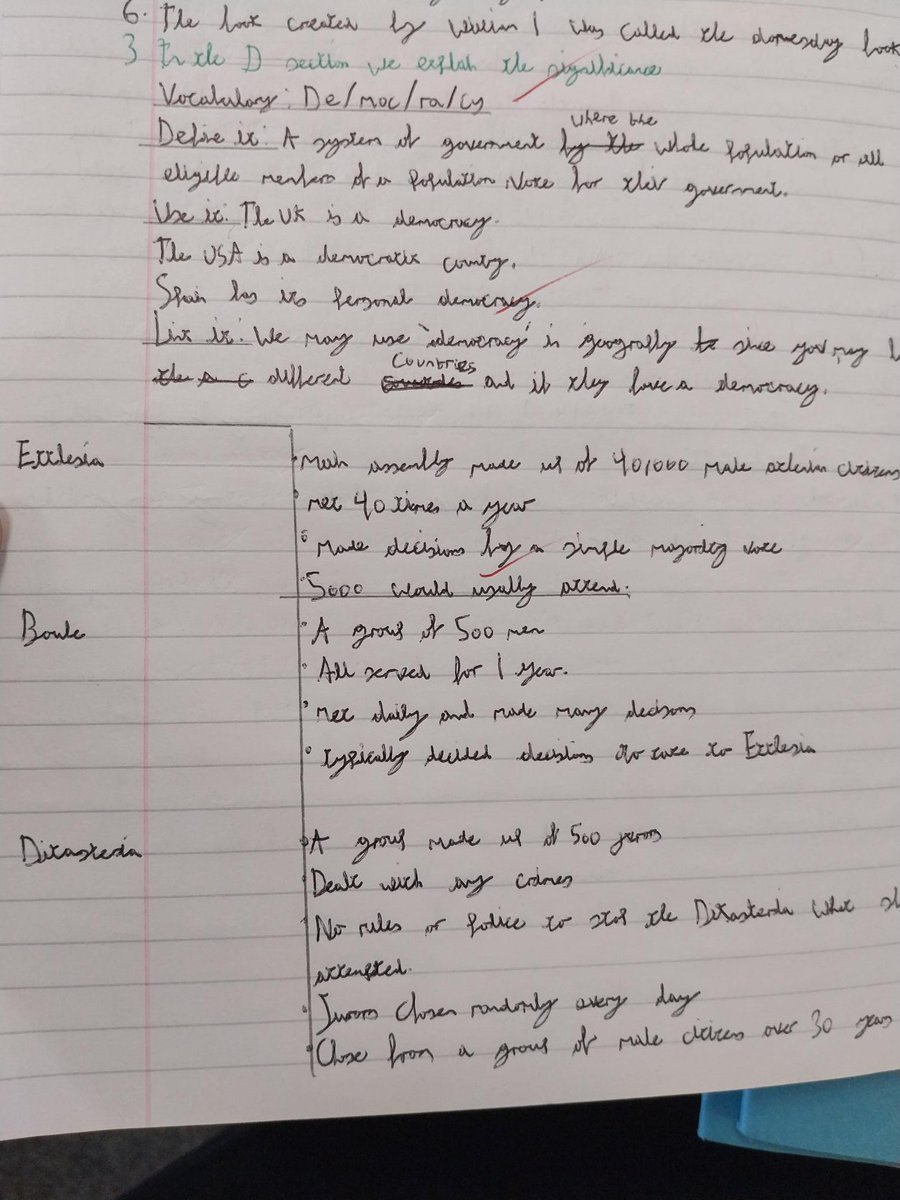 6. The book created by William 1 was called the domesday book
3 In the D section we explain the significance
Vocabulary: De/moc/ra/cy
where the
Define it: A system of government by the whole population or all
eligible members of a population, Vote for their goverment.
Use it: The UK is a democracy.
The USA is a democratic country.
Spain has its personal democracy.
Link it: We may use 'democracy' in geography since you may
Countries
different and if they have a democracy.
Ecclesia
Main assembly made up of 40,000 male citizens
Met 40 times a year
Made decisions by a simple majority vote
5000 would usally attend.
Boule
A group of 500 men
All served for 1 year.
Met daily and made many decisons
typically decided decisions to take to Ecclesia
Dikasteria
A group made up of 500 jurors
Dealt with any crimes
No rules or police to stop the Dikasteria what
attempted.
Jurors chosen randomly every day
Chose from a group of male citizens over 30 years